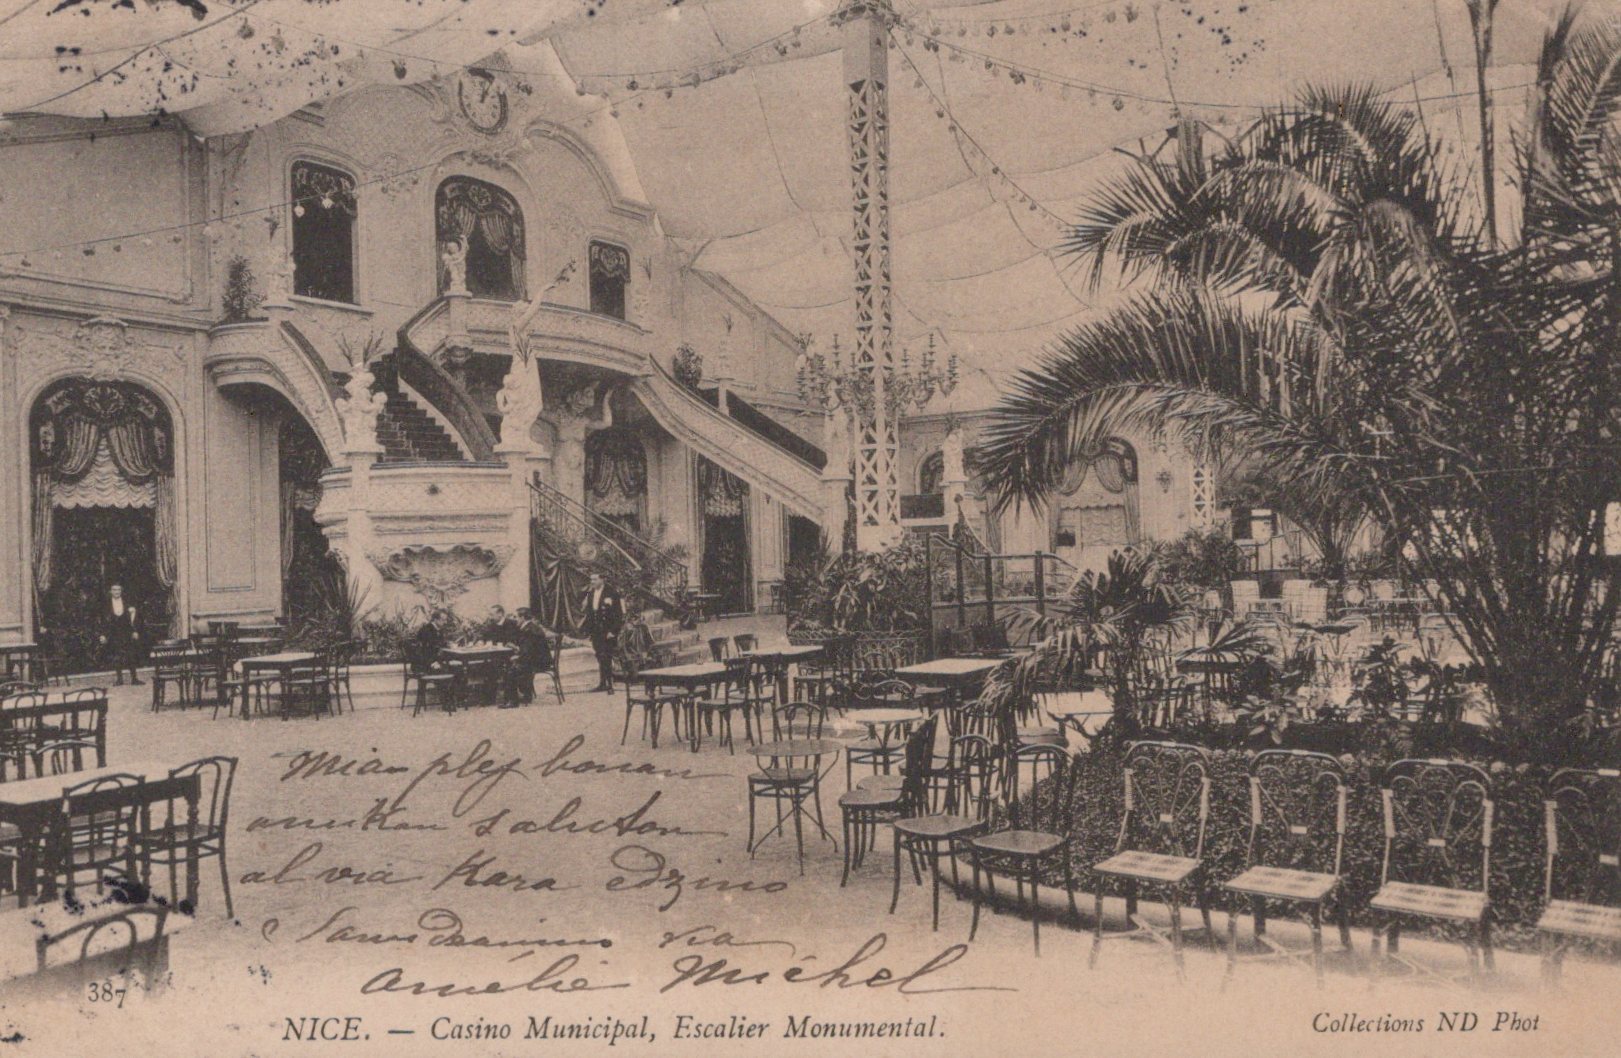 Mian plej bonan
amikan saluton
al via kara edzino
Samideanino via
Amélie Michel
387
NICE. — Casino Municipal, Escalier Monumental.
Collections ND Phot